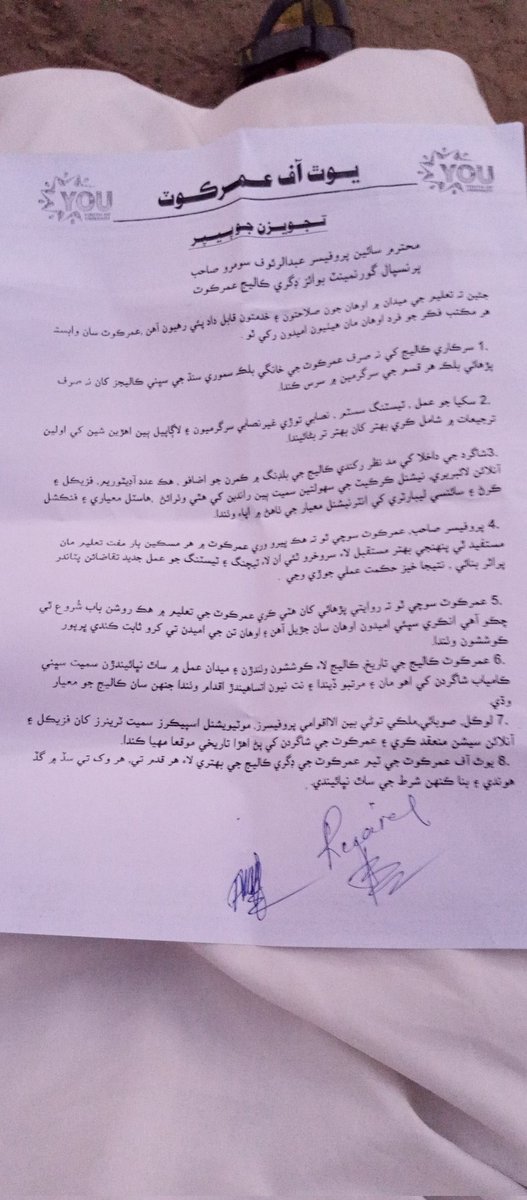 يوٿ آف عمرڪوٽ
YOU
YOU
تجويزن جو پيپر
محترم سائين پروفيسر عبدالرئوف سومرو صاحب
پرنسپال گورنمينٽ بوائز ڊگري ڪاليج عمرڪوٽ
جيئن تہ تعليم جي ميدان ۾ اوهان جون صلاحتون ۽ خدمتون قابل داد پئي رهيون آهن ,عمرڪوٽ سان وابستہ
هر مڪتب فڪر جو فرد اوهان مان هيٺيون اميدون رکي ٿو .
1. سرڪاري ڪاليج کي نہ صرف عمرڪوٽ جي خانگي بلڪ سموري سنڌ جي سڀني ڪاليجز کان نہ صرف
پڙهائي بلڪ هر قسم جي سرگرمين ۾ سرس ڪندا.
2. سکيا جو عمل , ٽيسٽنگ سسٽم , نصابي توڙي غيرنصابي سرگرميون ۽ لاڳاپيل ٻين اهڙين شين کي اولين
ترجيعات ۾ شامل ڪري بهتر کان بهتر تر بڻائيندا.
3.شاگرد جي داخلا کي مد نظر رکندي ڪاليج جي بلڊنگ ۾ ڪمرن جو اضافو , هڪ عدد آڊيٽوريم, فزيڪل ۽
آنلائن لائبريري, نيشنل ڪرڪيٽ جي سهولتين سميت ٻين راندين کي هٿي وٺرائڻ ,هاسٽل معياري ۽ فنڪشل
ڪرڻ ۽ سائنسي ليبارٽري کي انٽرنيشنل معيار جي ٺاهڻ ۾ اپاءَ وٺندا.
4. پروفيسر صاحب, عمرڪوٽ سوچي ٿو تہ هڪ ڀيرو وري عمرڪوٽ ۾ هر مسڪين ٻار مفت تعليم مان
مستفيد ٿي پنهنجي بهتر مستقبل لاءِ سرخرو ٿئي ان لاءِ ٽيچنگ ۽ ٽيسٽنگ جو عمل جديد تقاضائن پٽاندر
پراثر بنائي , نتيجا خيز حڪمت عملي جوڙي وڃي .
5. عمرڪوٽ سوچي ٿو تہ روايتي پڙهائي کان هٽي ڪري عمرڪوٽ جي تعليم ۾ هڪ روشن باب شُروع ٿي
چڪو آهي انڪري سڀئي اميدون اوهان سان جڙيل آهن ۽ اوهان تن جي اميدن تي کرو ثابت ڪندي ڀرپور
ڪوششون وٺندا.
6. عمرڪوٽ ڪاليج جي تاريخ, ڪاليج لاءِ ڪوششون وٺندڙن ۽ ميدان عمل ۾ ساٿ نڀائيندڙن سميت سڀني
ڪامياب شاگردن کي اهو مان ۽ مرتبو ڏيندا ۽ نت نيون اتساهيندڙ اقدام وٺندا جنهن سان ڪاليج جو معيار
وڌي.
7. لوڪل, صوبائي,ملڪي توڻي بين الاقوامي پروفيسرز, موٽيويشنل اسپيڪرز سميت ٽرينرز کان فزيڪل ۽
آنلائن سيشن منعقد ڪري ۽ عمرڪوٽ جي شاگردن کي پڻ اهڙا تاريخي موقعا مهيا ڪندا.
8. يوٿ آف عمرڪوٽ جي ٽيم عمرڪوٽ جي ڊگري ڪاليج جي بهتري لاءِ هر قدم تي, هر وک تي سڏ ۾ گڏ
هوندي ۽ بنا ڪنهن شرط جي ساٿ نڀائيندي .